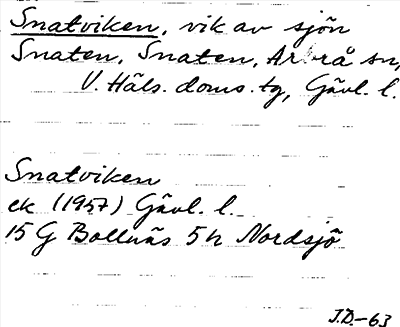 Snatviken, vik av sjön
Snaten, Snaten, Arbrå sn,
V. Häls. doms. tg, Gävl. l.
Snatviken
ek (1957) Gävl. l.
15 G Bollnäs 5h Nordsjö
J.D.-63